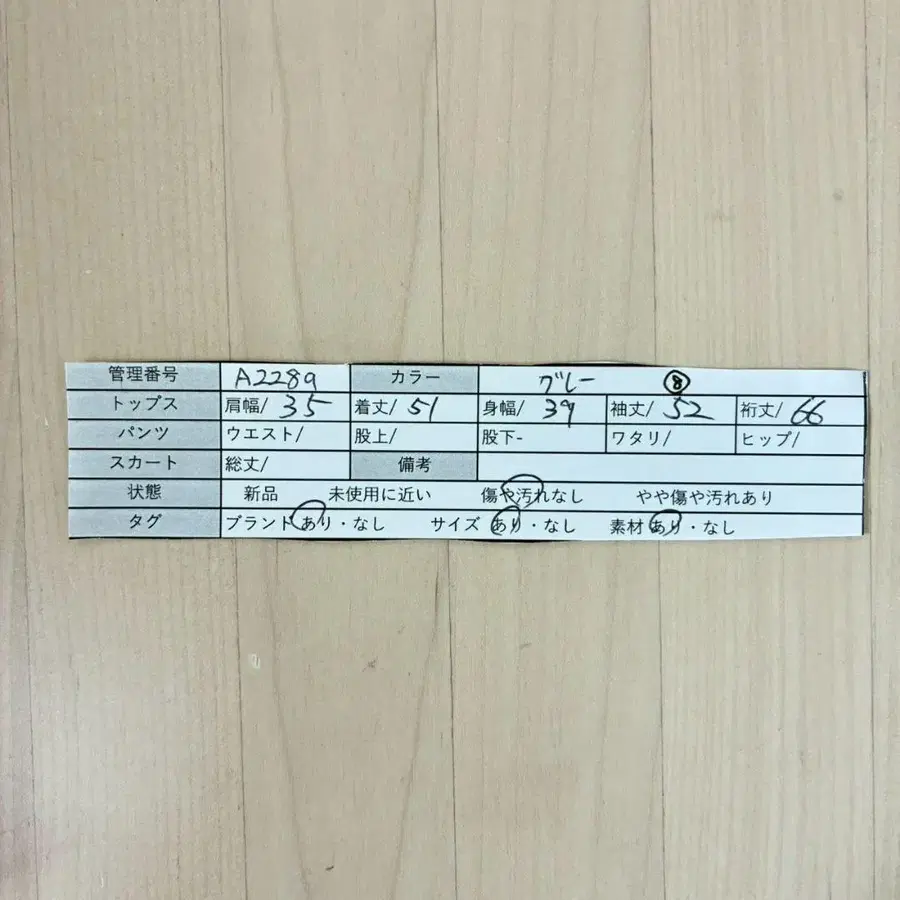 管理番号 A2289 カラー グレー ⑧
トップス 肩幅/ 35 着丈/ 51 身幅/ 39 袖丈/ 52 裄丈/ 66
パンツ ウエスト/ 股上/ 股下- ワタリ/ ヒップ/
スカート 総丈/ 備考
状態 新品 未使用に近い 傷や汚れなし やや傷や汚れあり
タグ ブランド あり・なし サイズ あり・なし 素材 あり・なし